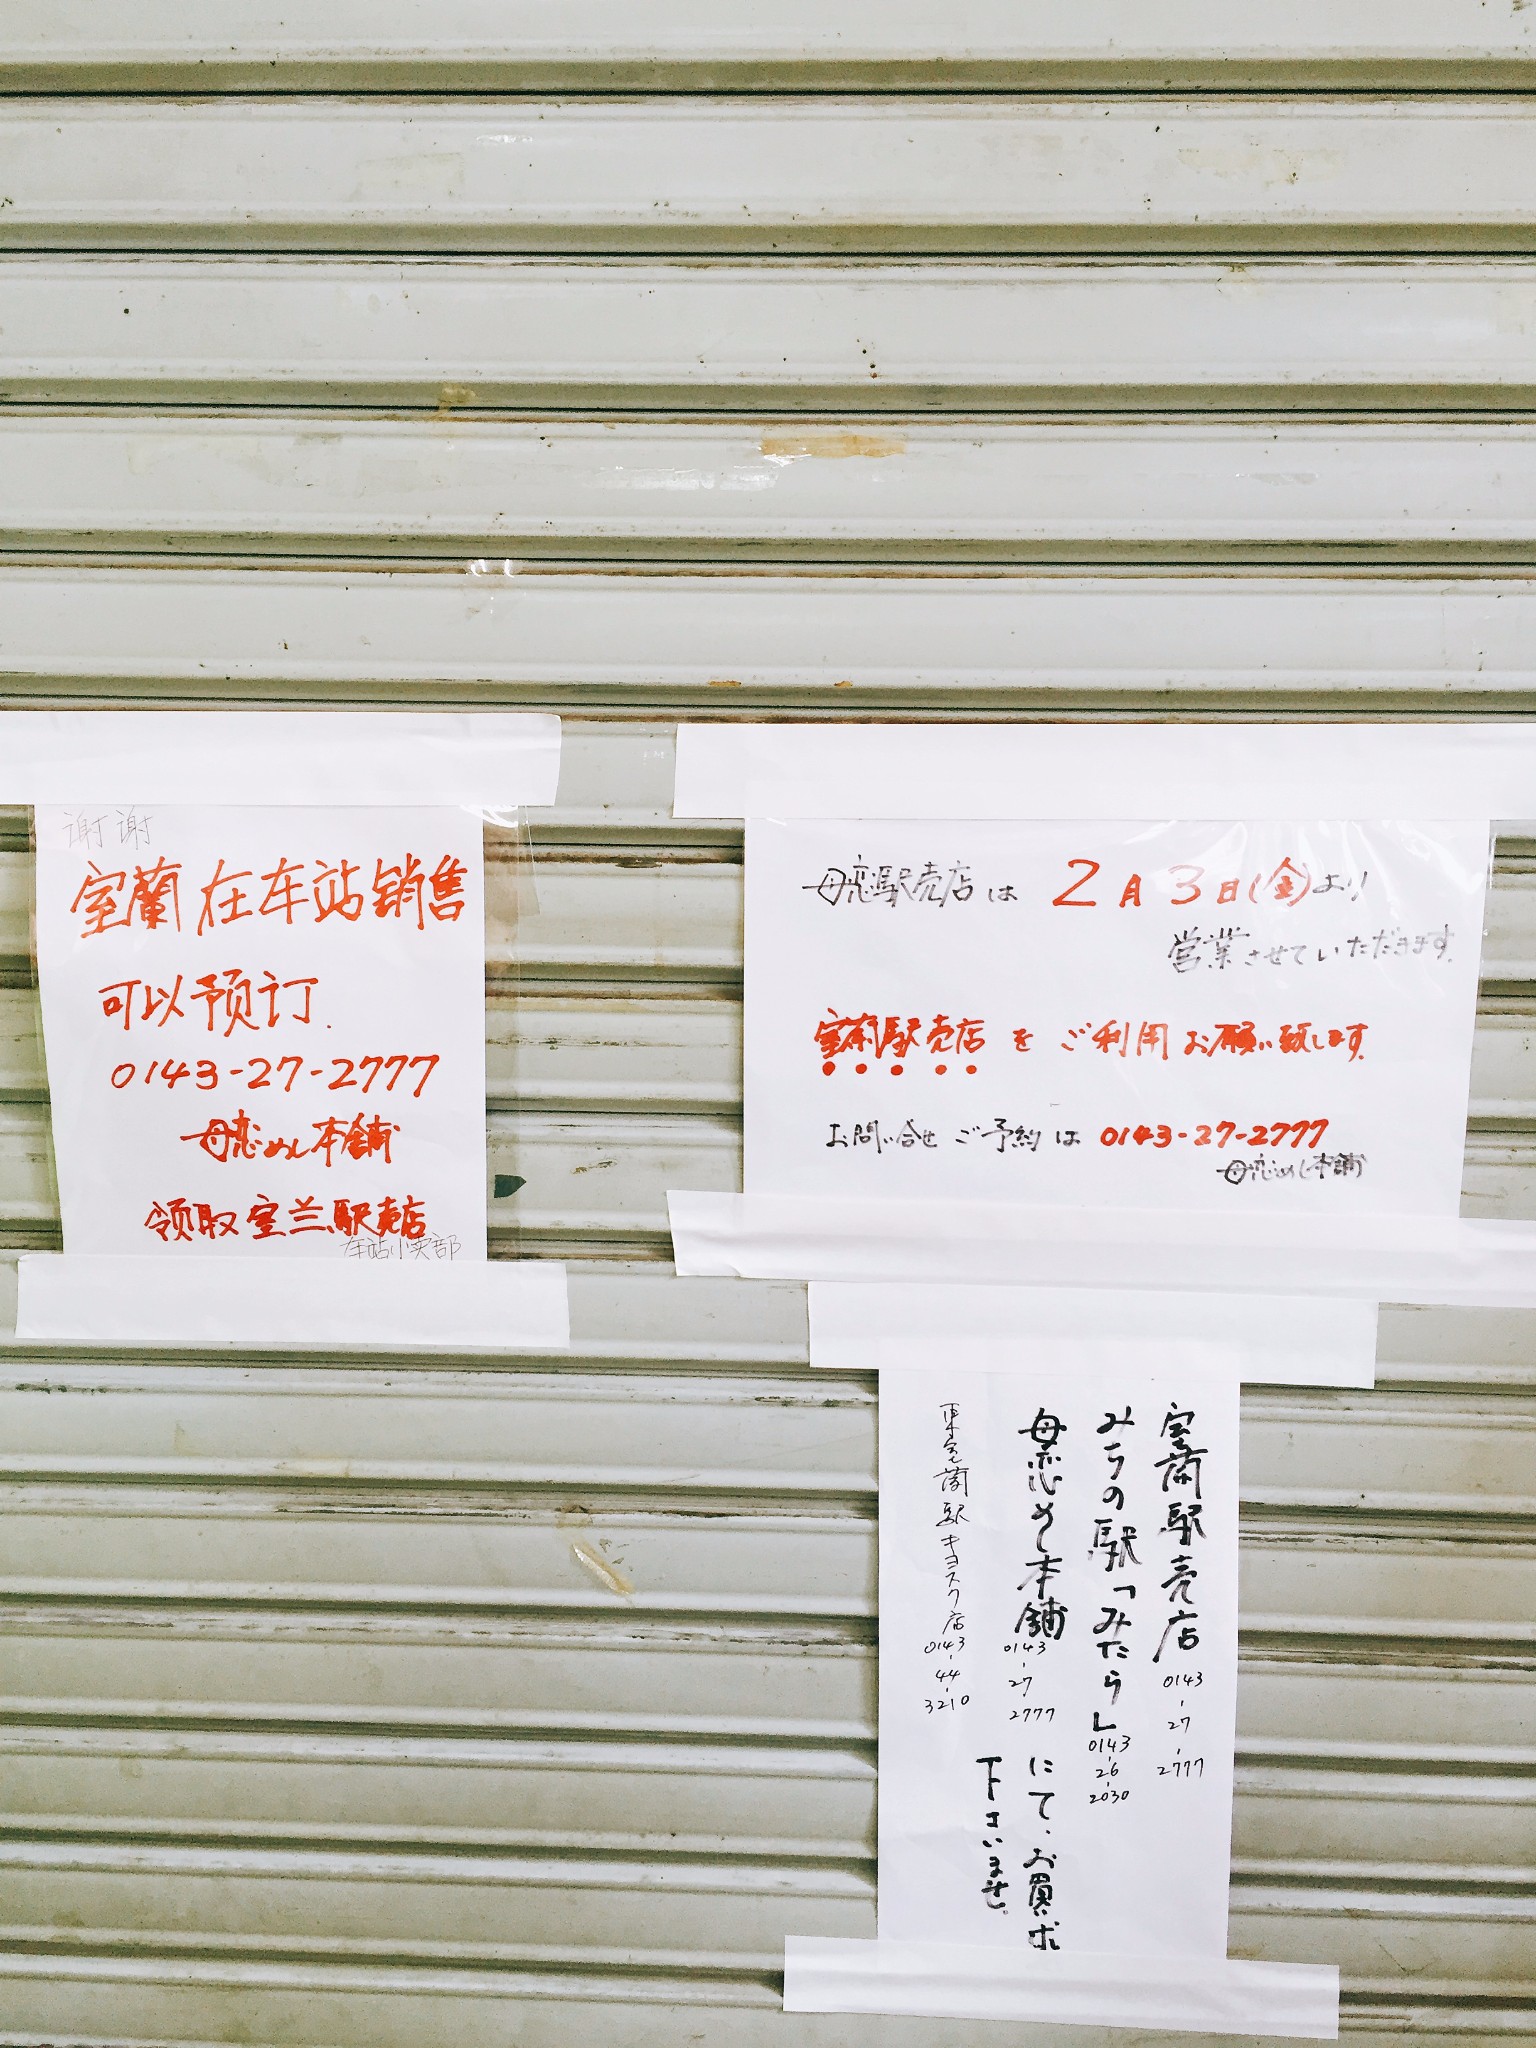 谢谢
室蘭 在车站销售
可以预订.
0143-27-2777
母恋めし本舗
领取 室兰駅売店
车站小卖部
母恋駅売店は 2月3日(金)より
営業させていただきます.
室蘭駅売店 を ご利用 お願い致します.
お問い合せ ご予約は 0143-27-2777
母恋めし本舗
室蘭駅売店 0143-27-2777
みちの駅「みたら」 0143-26-2030
母恋めし本舗 0143-27-2777 にて、お買い求
下さいませ.
東室蘭駅キヨスク店 0143-44-3210